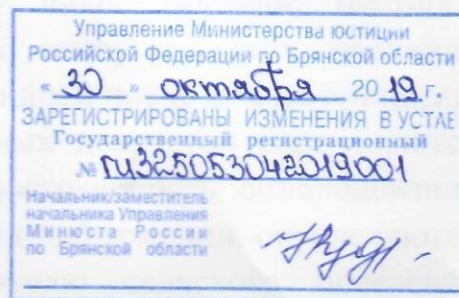 Управление Министерства юстиции
Российской Федерации по Брянской области
« 30 » октября 20 19 г.
ЗАРЕГИСТРИРОВАНЫ ИЗМЕНЕНИЯ В УСТАВ
Государственный регистрационный
№ ru325053042019001
Начальник/заместитель
начальника Управления
Минюста России
по Брянской области